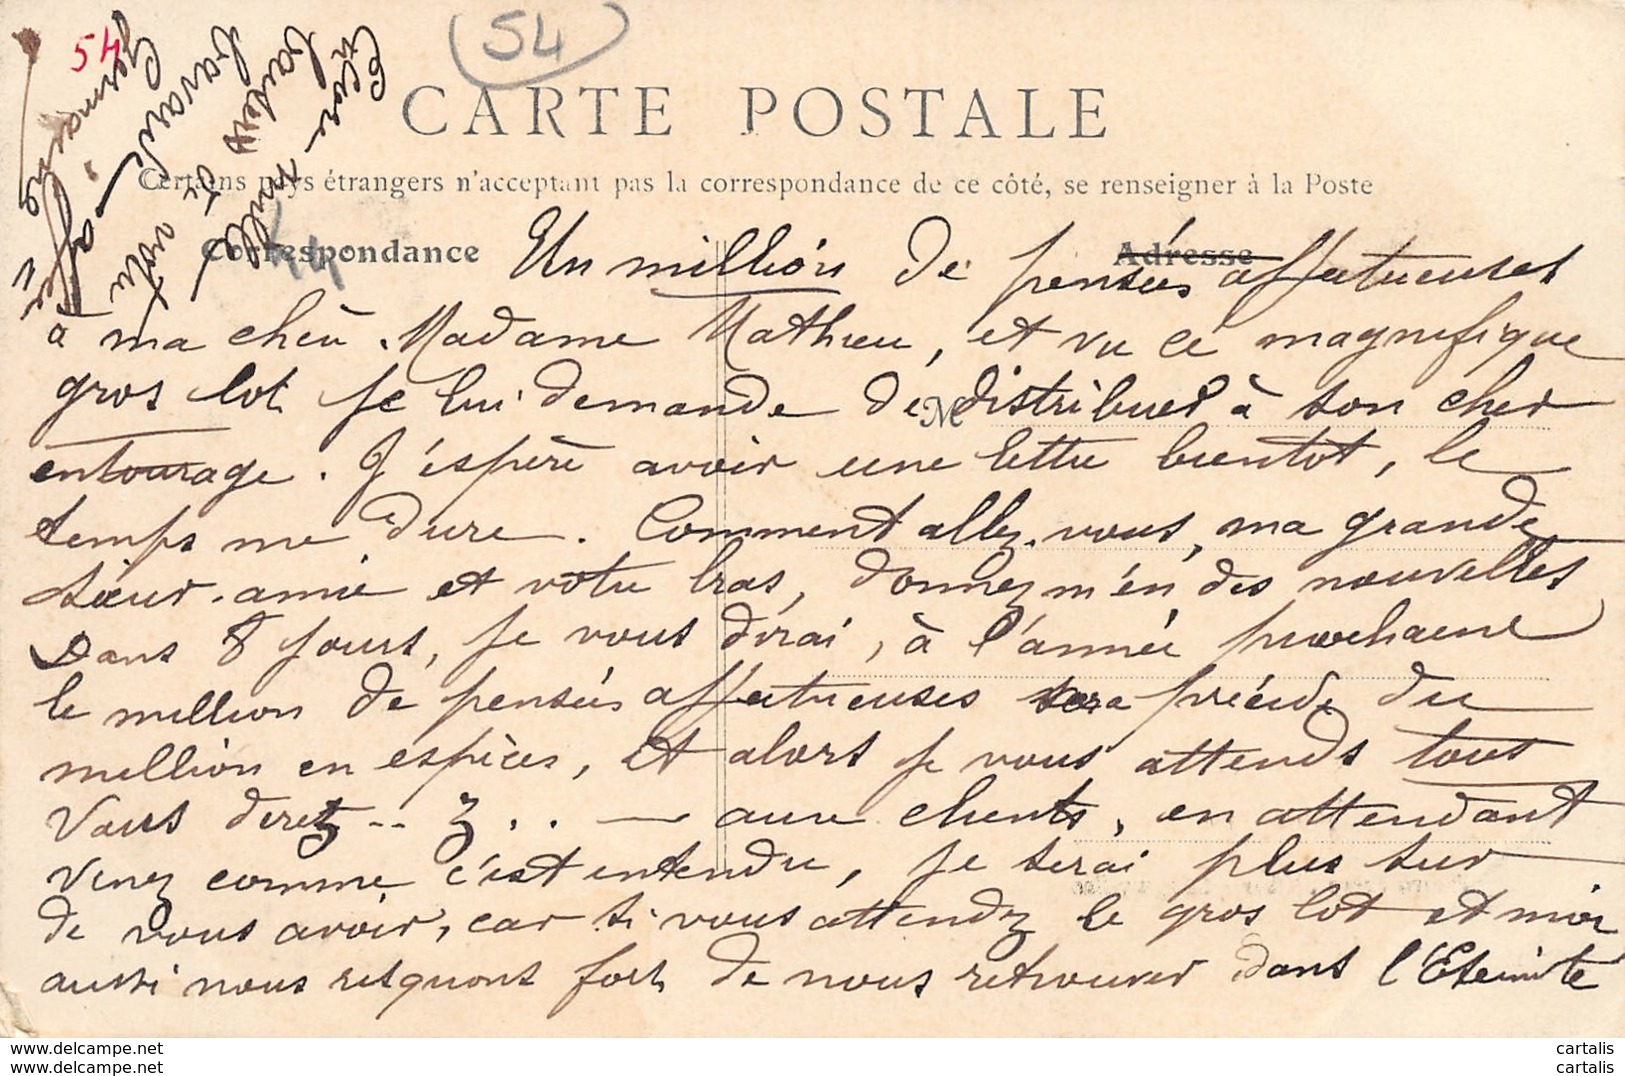 54
54
CARTE POSTALE
Certains pays étrangers n'acceptant pas la correspondance de ce côté, se renseigner à la Poste
Correspondance
Adresse
Encore mille
baisers de votre
bavarde
Germaine
Un million de pensées affectueuses
à ma chère Madame Mathieu, et vu ce magnifique
gros lot je lui demande de distribuer à son cher
M
entourage. J'espère avoir une lettre bientôt, le
temps me dure. Comment allez-vous, ma grande
sœur-amie et votre bras, donnez m'en des nouvelles
Dans 8 jours, je vous dirai, à l'année prochaine
le million de pensées affectueuses sera précédé du
million en espèces, et alors je vous attends tous
Vous direz -- z . . — aux clients, en attendant
Venez comme c'est entendu, je serai plus sûr
de vous avoir, car si vous attendez le gros lot et moi
aussi nous risquons fort de nous retrouver dans l'Eternité
cartalis.delcampe.net
cartalis.delcampe.net
cartalis
cartalis